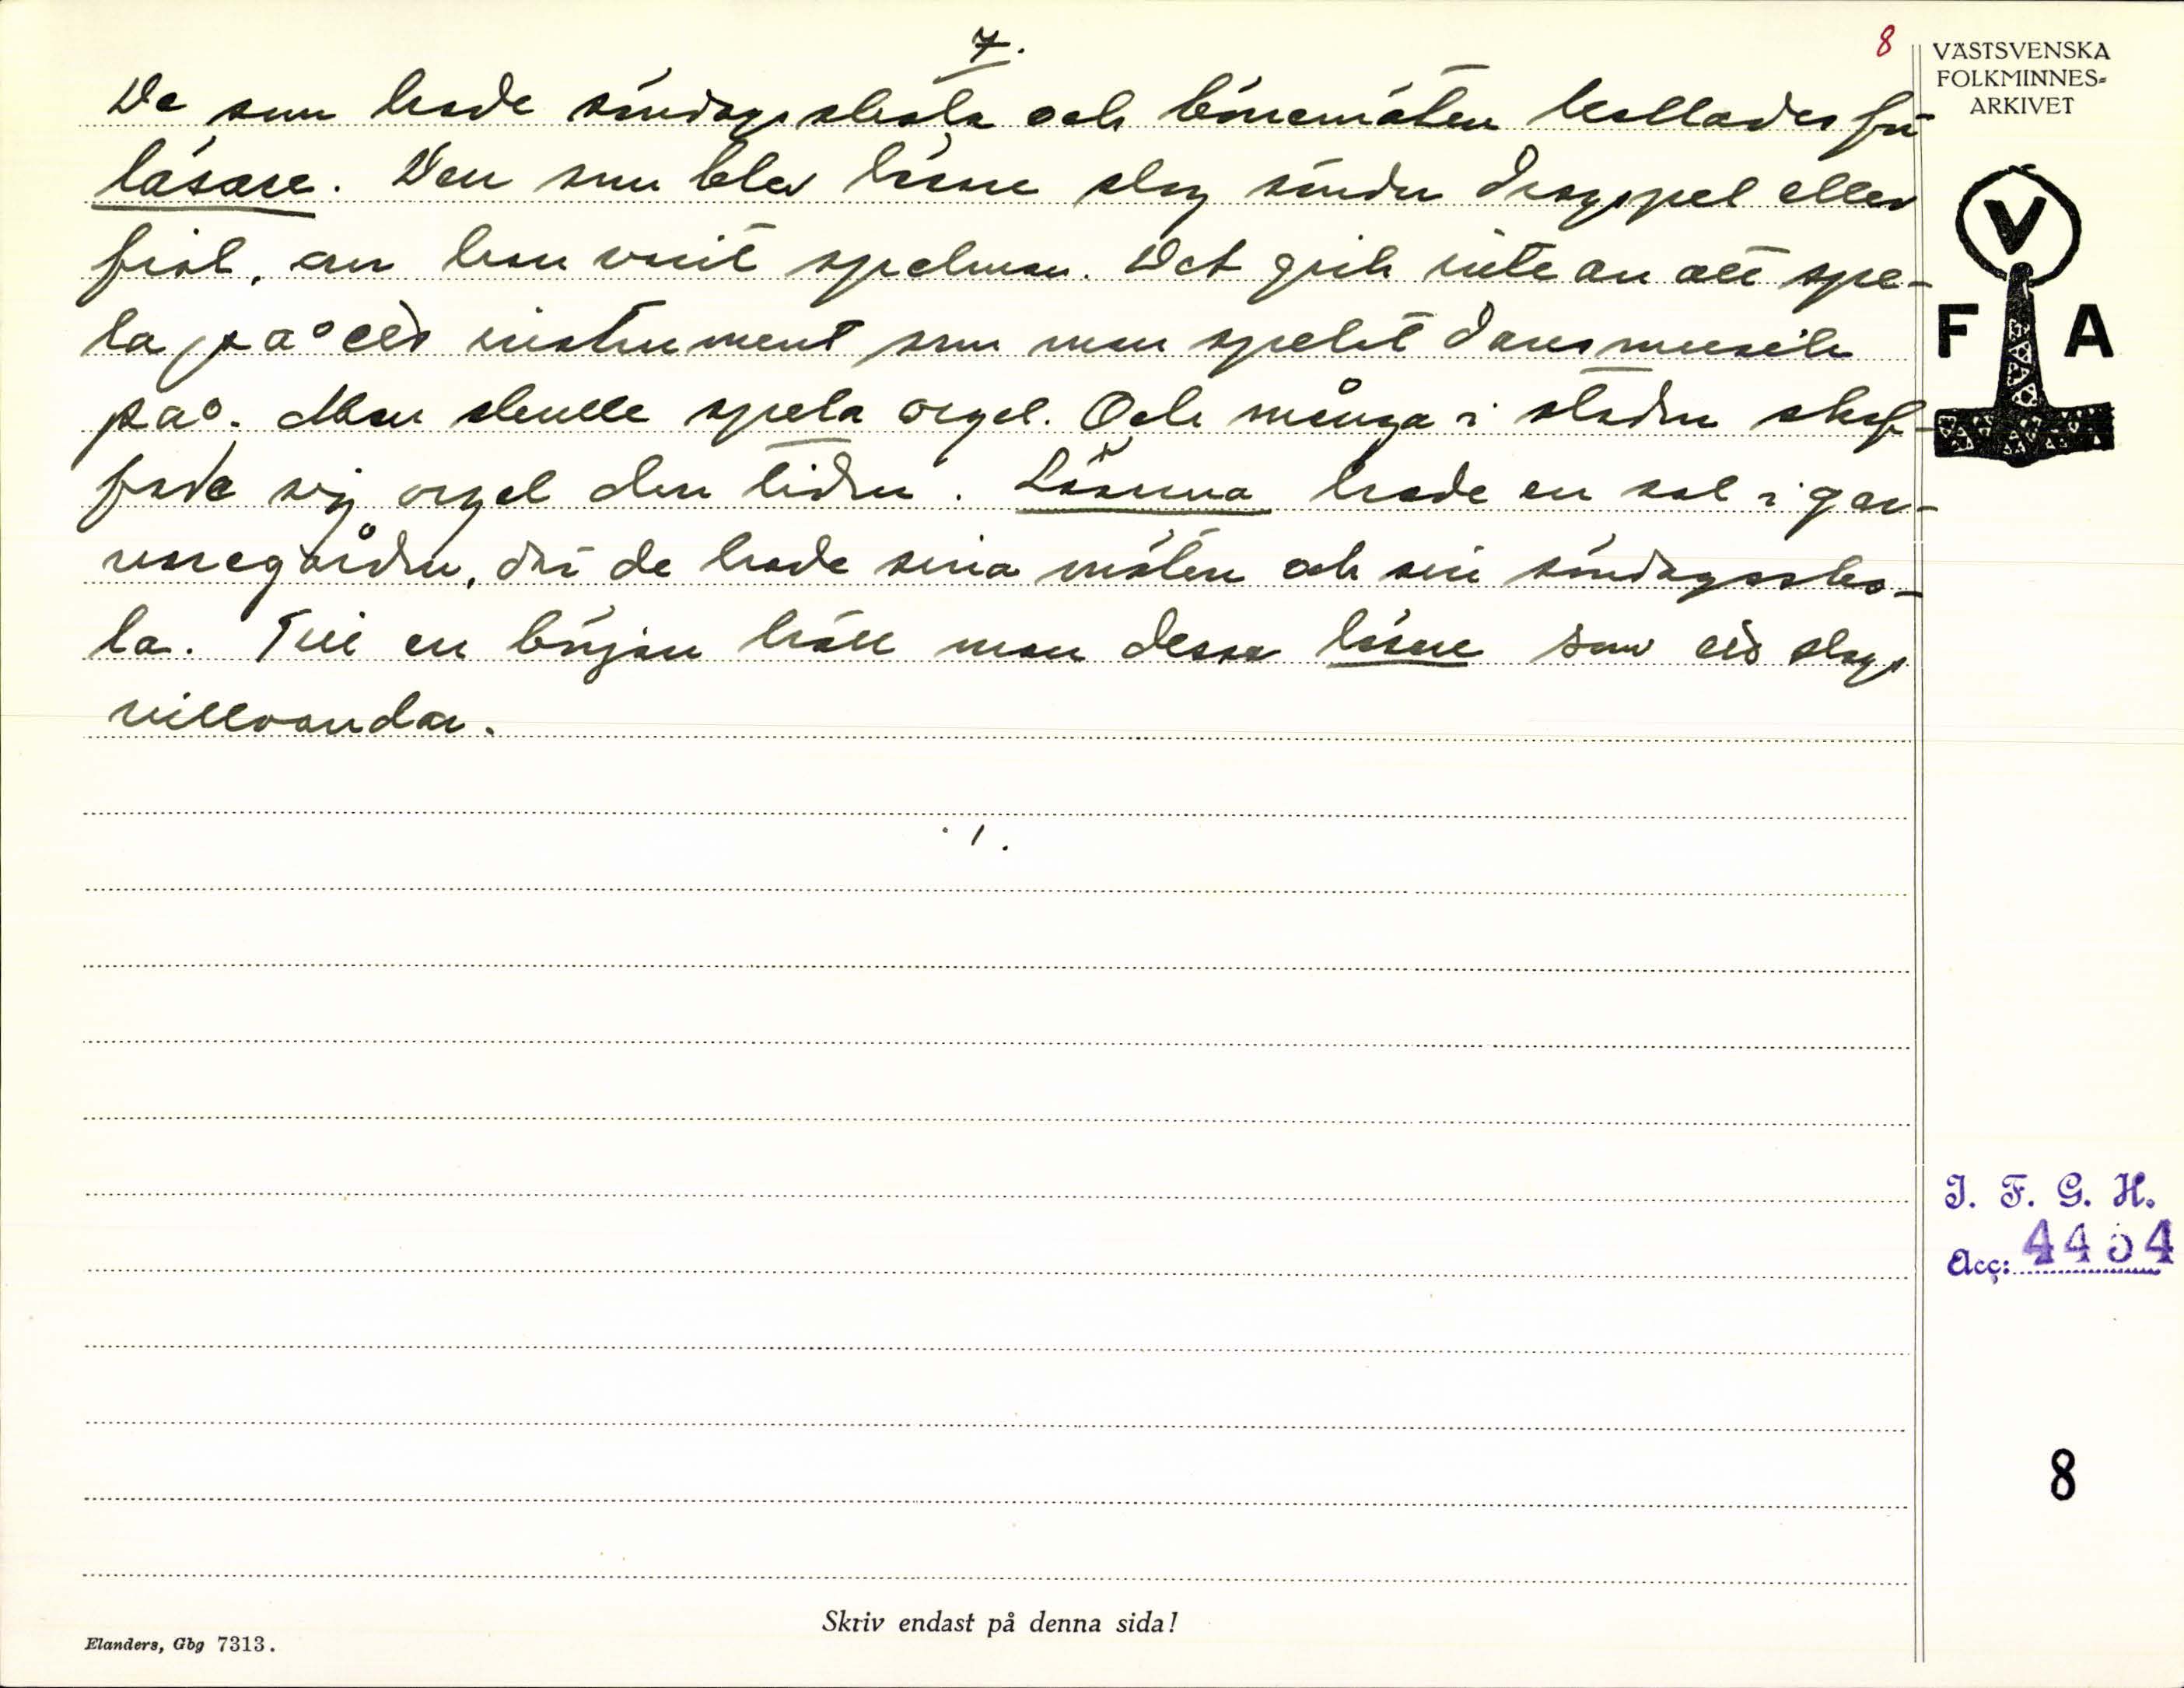 7.
8
VÄSTSVENSKA
FOLKMINNES-
ARKIVET
De som hade söndagsskola och bönemöten kallades för
läsare. Den som blev läsare slog sönder dragspel eller
fiol, om han varit spelman. Det gick inte an att spe-
la på ett instrument som man spelat dansmusik
på. Man skulle spela orgel. Och många i staden skaf-
fade sig orgel den tiden. Läsarna hade en sal i gar-
varegården, där de hade sina möten och sin söndagssko-
la. Till en början höll man dessa läsare som ett slags
villoandar.
V
F A
I. F. G. H.
Acc: 4454
8
Skriv endast på denna sida!
Elanders, Gbg 7313.